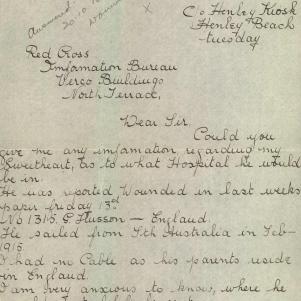 Answered
20.10.
C/o Henley Kiosk
x
Henley Beach
tuesday
Red Cross
Imfamation Bureau
Verco Buildings
North Terrace,
Dear Sir.
Could you
give me any imfamation regarding my
Sweetheart, as to what Hospital he would
be in.
He was reported Wounded in last weeks
paper friday 13th
No 1315. G Husson — England.
He sailed from Sth Australia in Feb-
1915
I had no Cable as his parents reside
in England.
I am very anxious to know, where he